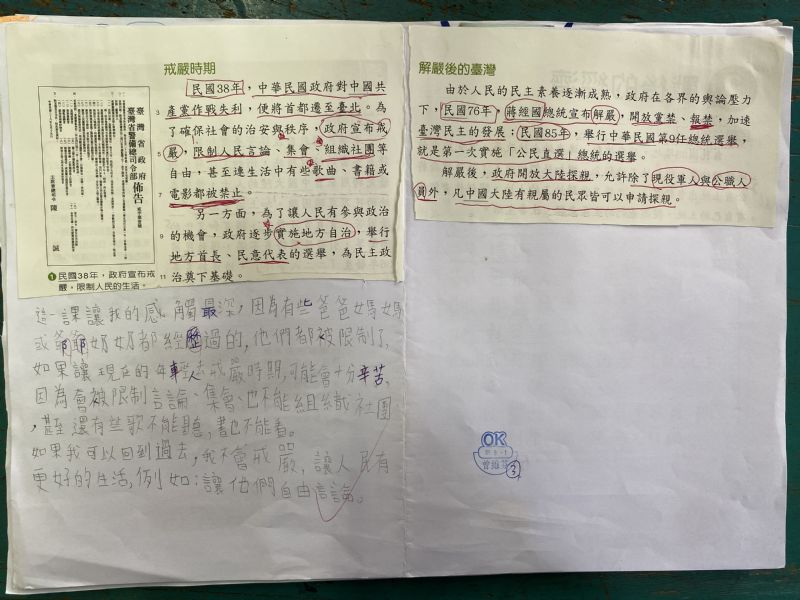 戒嚴時期
民國38年，中華民國政府對中國共
產黨作戰失利，便將首都遷至臺北。為
了確保社會的治安與秩序，政府宣布戒
嚴，限制人民言論、集會、組織社團等
自由，甚至連生活中有些歌曲、書籍或
電影都被禁止。
另一方面，為了讓人民有參與政治
的機會，政府逐步實施地方自治，舉行
地方首長、民意代表的選舉，為民主政
治奠下基礎。
3
5
7
9
11
臺灣省政府
臺灣省警備總司令部
佈告
陳誠
1 民國38年，政府宣布戒
嚴，限制人民的生活。
這一課讓我的感觸最深，因為有些爸爸媽媽
或爺爺奶奶都經歷過的，他們都被限制了，
如果讓現在的年輕人去戒嚴時期，可能會十分辛苦、
因為會被限制言論、集會、也不能組織社團
，甚至還有些歌不能聽，書也不能看。
如果我可以回到過去，我不會戒嚴，讓人民有
更好的生活，例如：讓他們自由言論。
解嚴後的臺灣
由於人民的民主素養逐漸成熟，政府在各界的輿論壓力
下，民國76年，蔣經國總統宣布解嚴，開放黨禁、報禁，加速
臺灣民主的發展；民國85年，舉行中華民國第9任總統選舉，
就是第一次實施「公民直選」總統的選舉。
解嚴後，政府開放大陸探親，允許除了現役軍人與公職人
員外，凡中國大陸有親屬的民眾皆可以申請探親。
OK